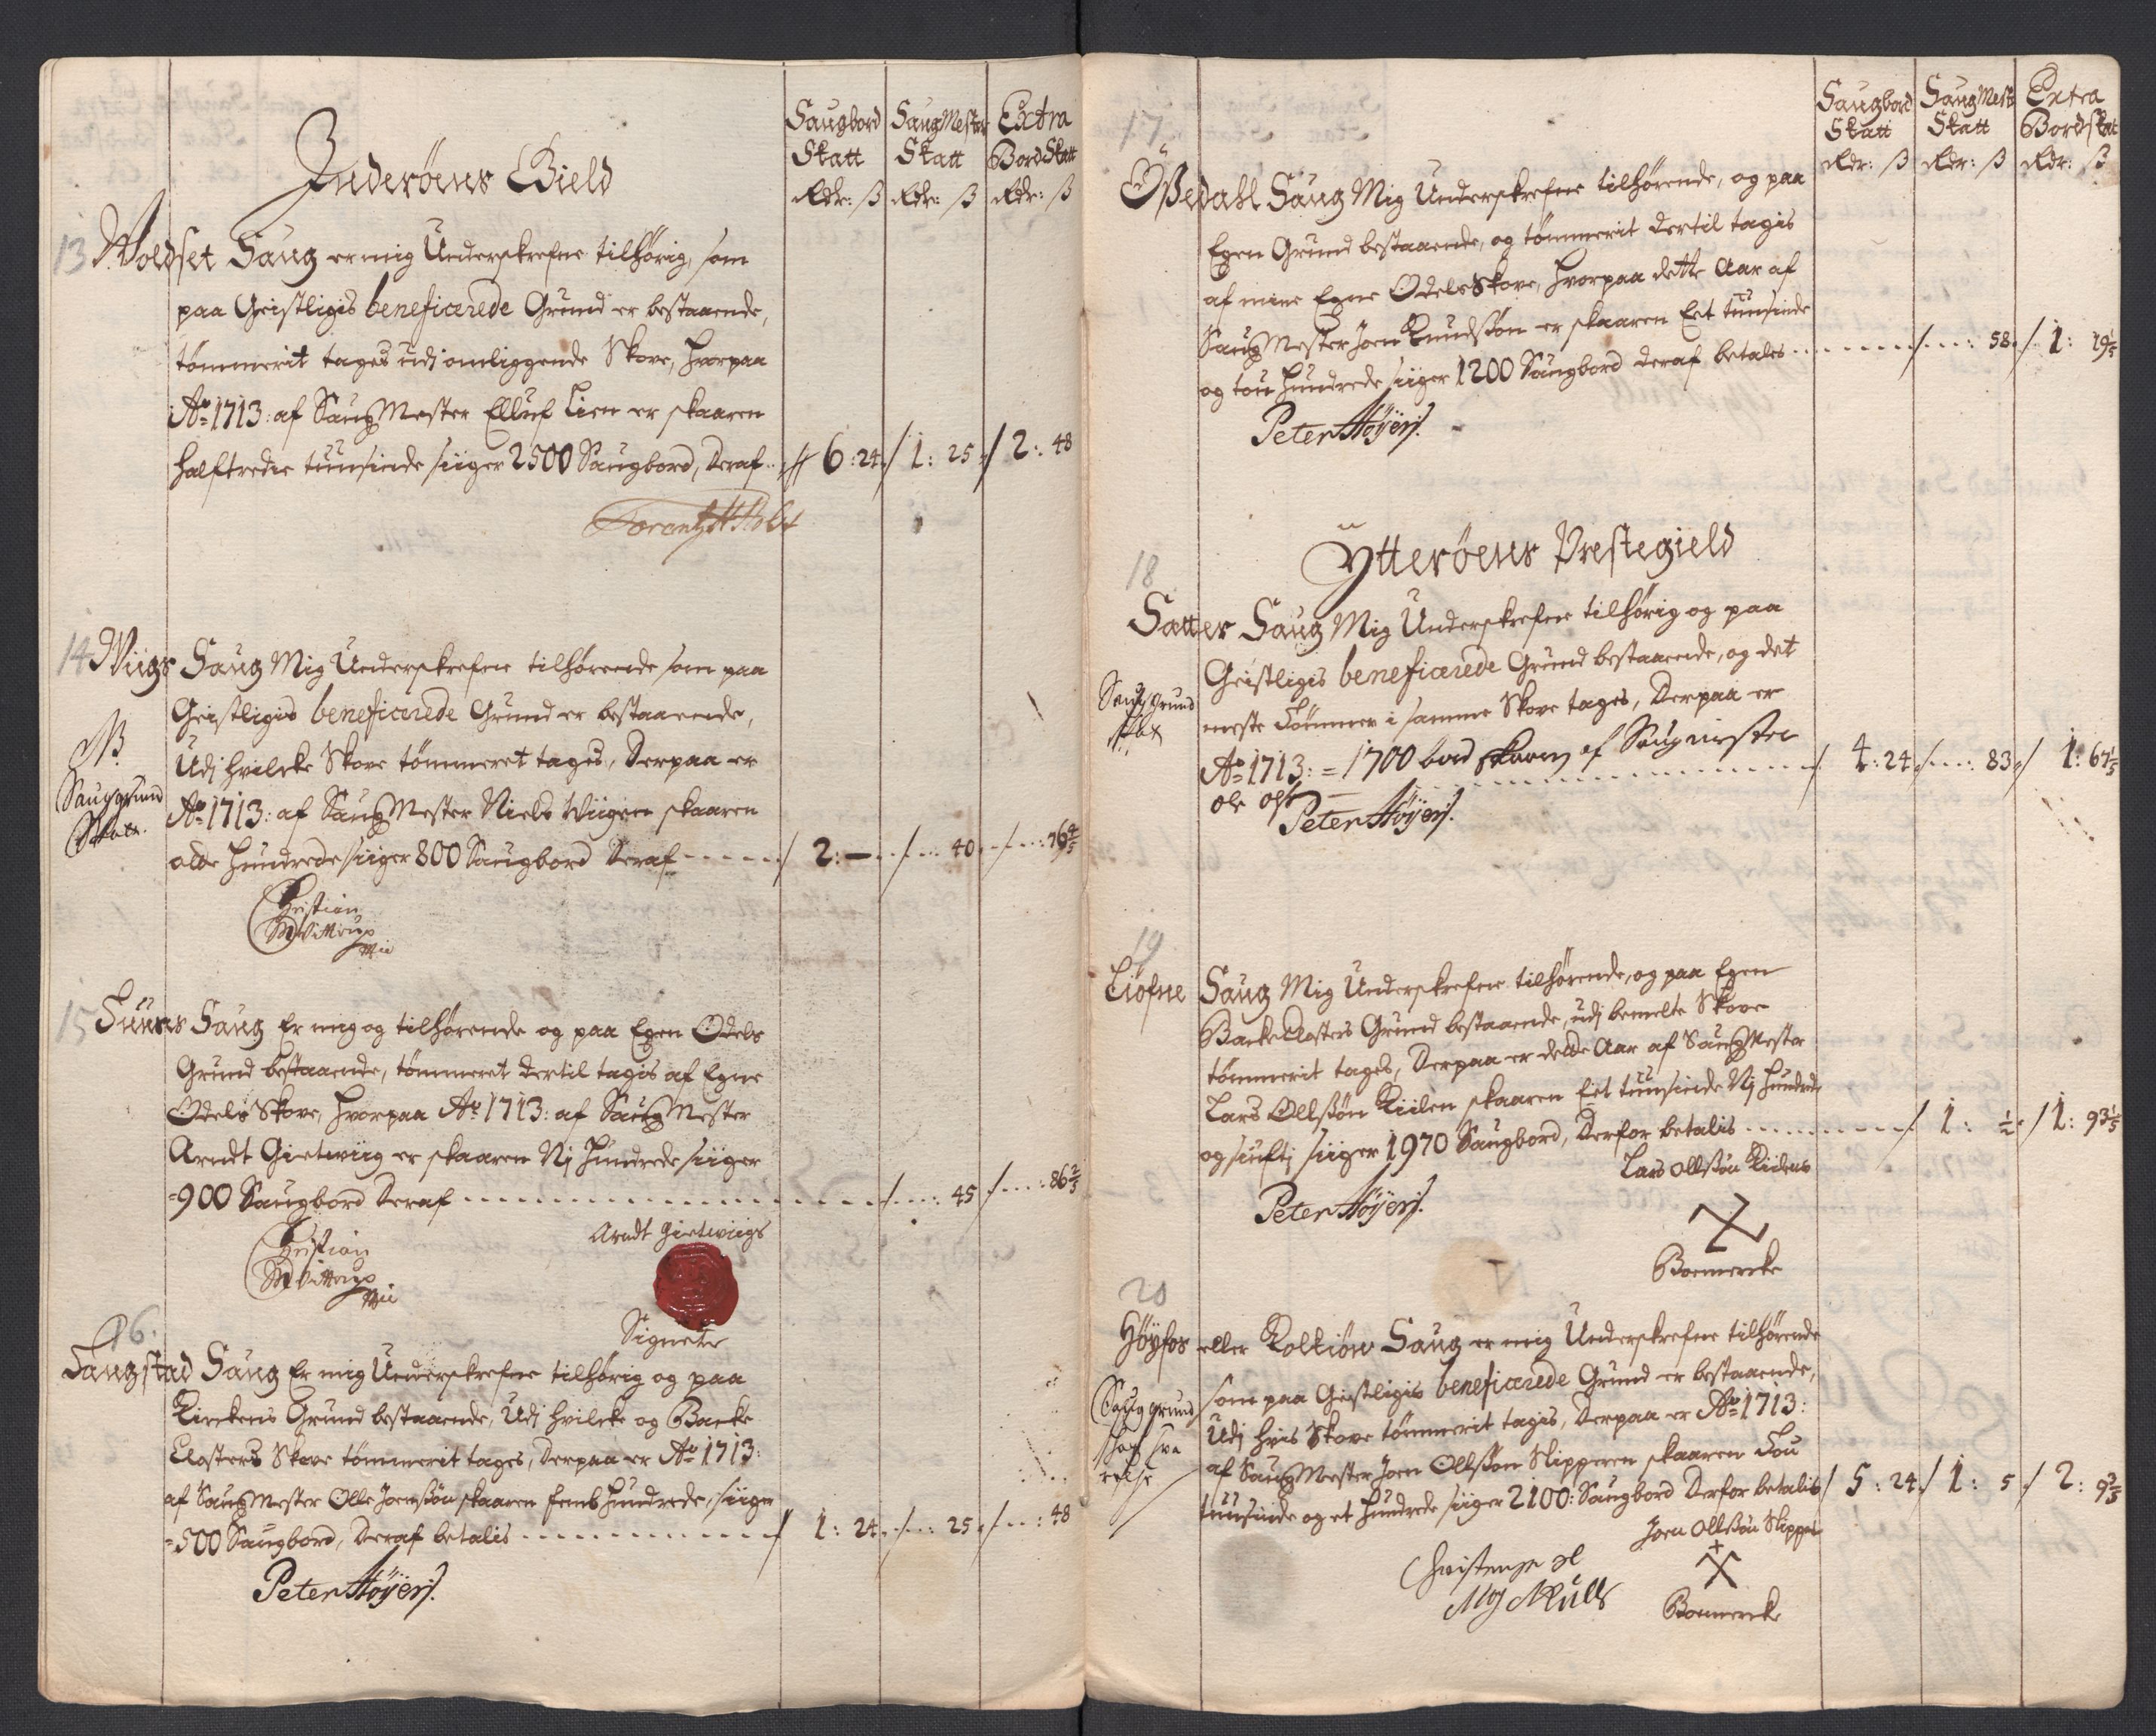 Saugbord Skatt Rdr: ß
SaugMester Skatt Rdr: ß
Extra BordSkatt Rdr: ß
Inderöens Gield
13 Woldset Saug er mig Underskrefne tilhörig, som
paa Geistligis beneficerede Grund er bestaaende,
tömmerit tages udj omliggende Skove, hvorpaa
Ao 1713: af SaugMester Elluf Lien er skaaren
halftredie tuusinde siiger 2500 Saugbord, Deraf 6:24 1:25 2:48
14 Wiigs Saug Mig Underskrefne tilhörende som paa
Geistligis beneficerede Grund er bestaaende,
NB
Udj hvilcke Skove tömmeret tages, Derpaa er
Saug grund
Ao 1713: af SaugMester Niels Wiigen skaaren
otte Hundrede siiger 800 Saugbord Deraf 2:— 40 76 4/5
Christian
Wittrup
15 Saug Er mig og tilhörende og paa Egen Odels
Grund bestaaende, tömmeret dertil tagis af Egne
Odels Skove, hvorpaa Ao 1713: af SaugMester
Arndt Gietwiig er skaaren Nj Hundrede siiger
=900 Saugbord Deraf 45 86 2/5
Arndt Gietwiigs
Christian
Wittrup
Signete
16.
Saugstad Saug Er mig Underskrefne tilhörig og paa
Kirckens Grund bestaaende, Udj hvilcke og Backe
Closters Skove tömmerit tages, Derpaa er Ao 1713:
af SaugMester Olle Joenssön skaaren femb Hundrede, siiger
=500 Saugbord, Deraf betalis 1:24 25 48
Peter Höyer
17
Saugbord Skatt Rdr: ß
SaugMest Skatt Rdr: ß
Extra Bordskat Rdr: ß
Ößedahl Saug Mig Underskrefne tilhörende, og paa
Egen Grund bestaaende, og tömmerit dertil tagis
af mine Egne Odels Skove, hvorpaa dette Aar af
SaugMester Joen Knudssön er skaaren Eet tuusinde
og tou Hundrede siiger 1200 Saugbord deraf betales 58 1: 19 1/5
Peter Höyer
Ytteröens Prestegield
18
Sætter Saug Mig Underskrefne tilhörig og paa
Geistligis beneficerede Grund bestaaende, og det
Saug Grund
meste Tömmer i samme Skove tages, Derpaa er
Ao 1713: = 1700 bord skaaren af Saugmester 4:24 83 1: 67 1/5
Ole
Peter Höyer
19
Liöfne Saug Mig Underskrefne tilhörende, og paa Egen
Backe Closters Grund bestaaende, udj bemelte Skove
tömmerit tages, Derpaa er dette Aar af SaugMester
Lars Ollssön Kiilen skaaren Eet tuusinde Nj Hundrede
og siufti siiger 1970 Saugbord, Derfor betalis 1: 1/2 1: 93 1/5
Lars Ollssön Kiilens
Peter Höyer
Boemercke
20
Höyfos eller Kolkiön Saug er mig Underskrefne tilhörende
som paa Geistligis beneficerede Grund er bestaaende,
Saug grund
Udj hvis Skove tömmerit tagis, Derpaa er Ao 1713:
af SaugMester Joen Ollssön Slipperen skaaren Tou
tuusinde og et Hundrede siiger 2100: Saugbord Derfor betalis 5:24 1:5 2: 9 3/5
Joen Ollssön Slipper
Boemercke